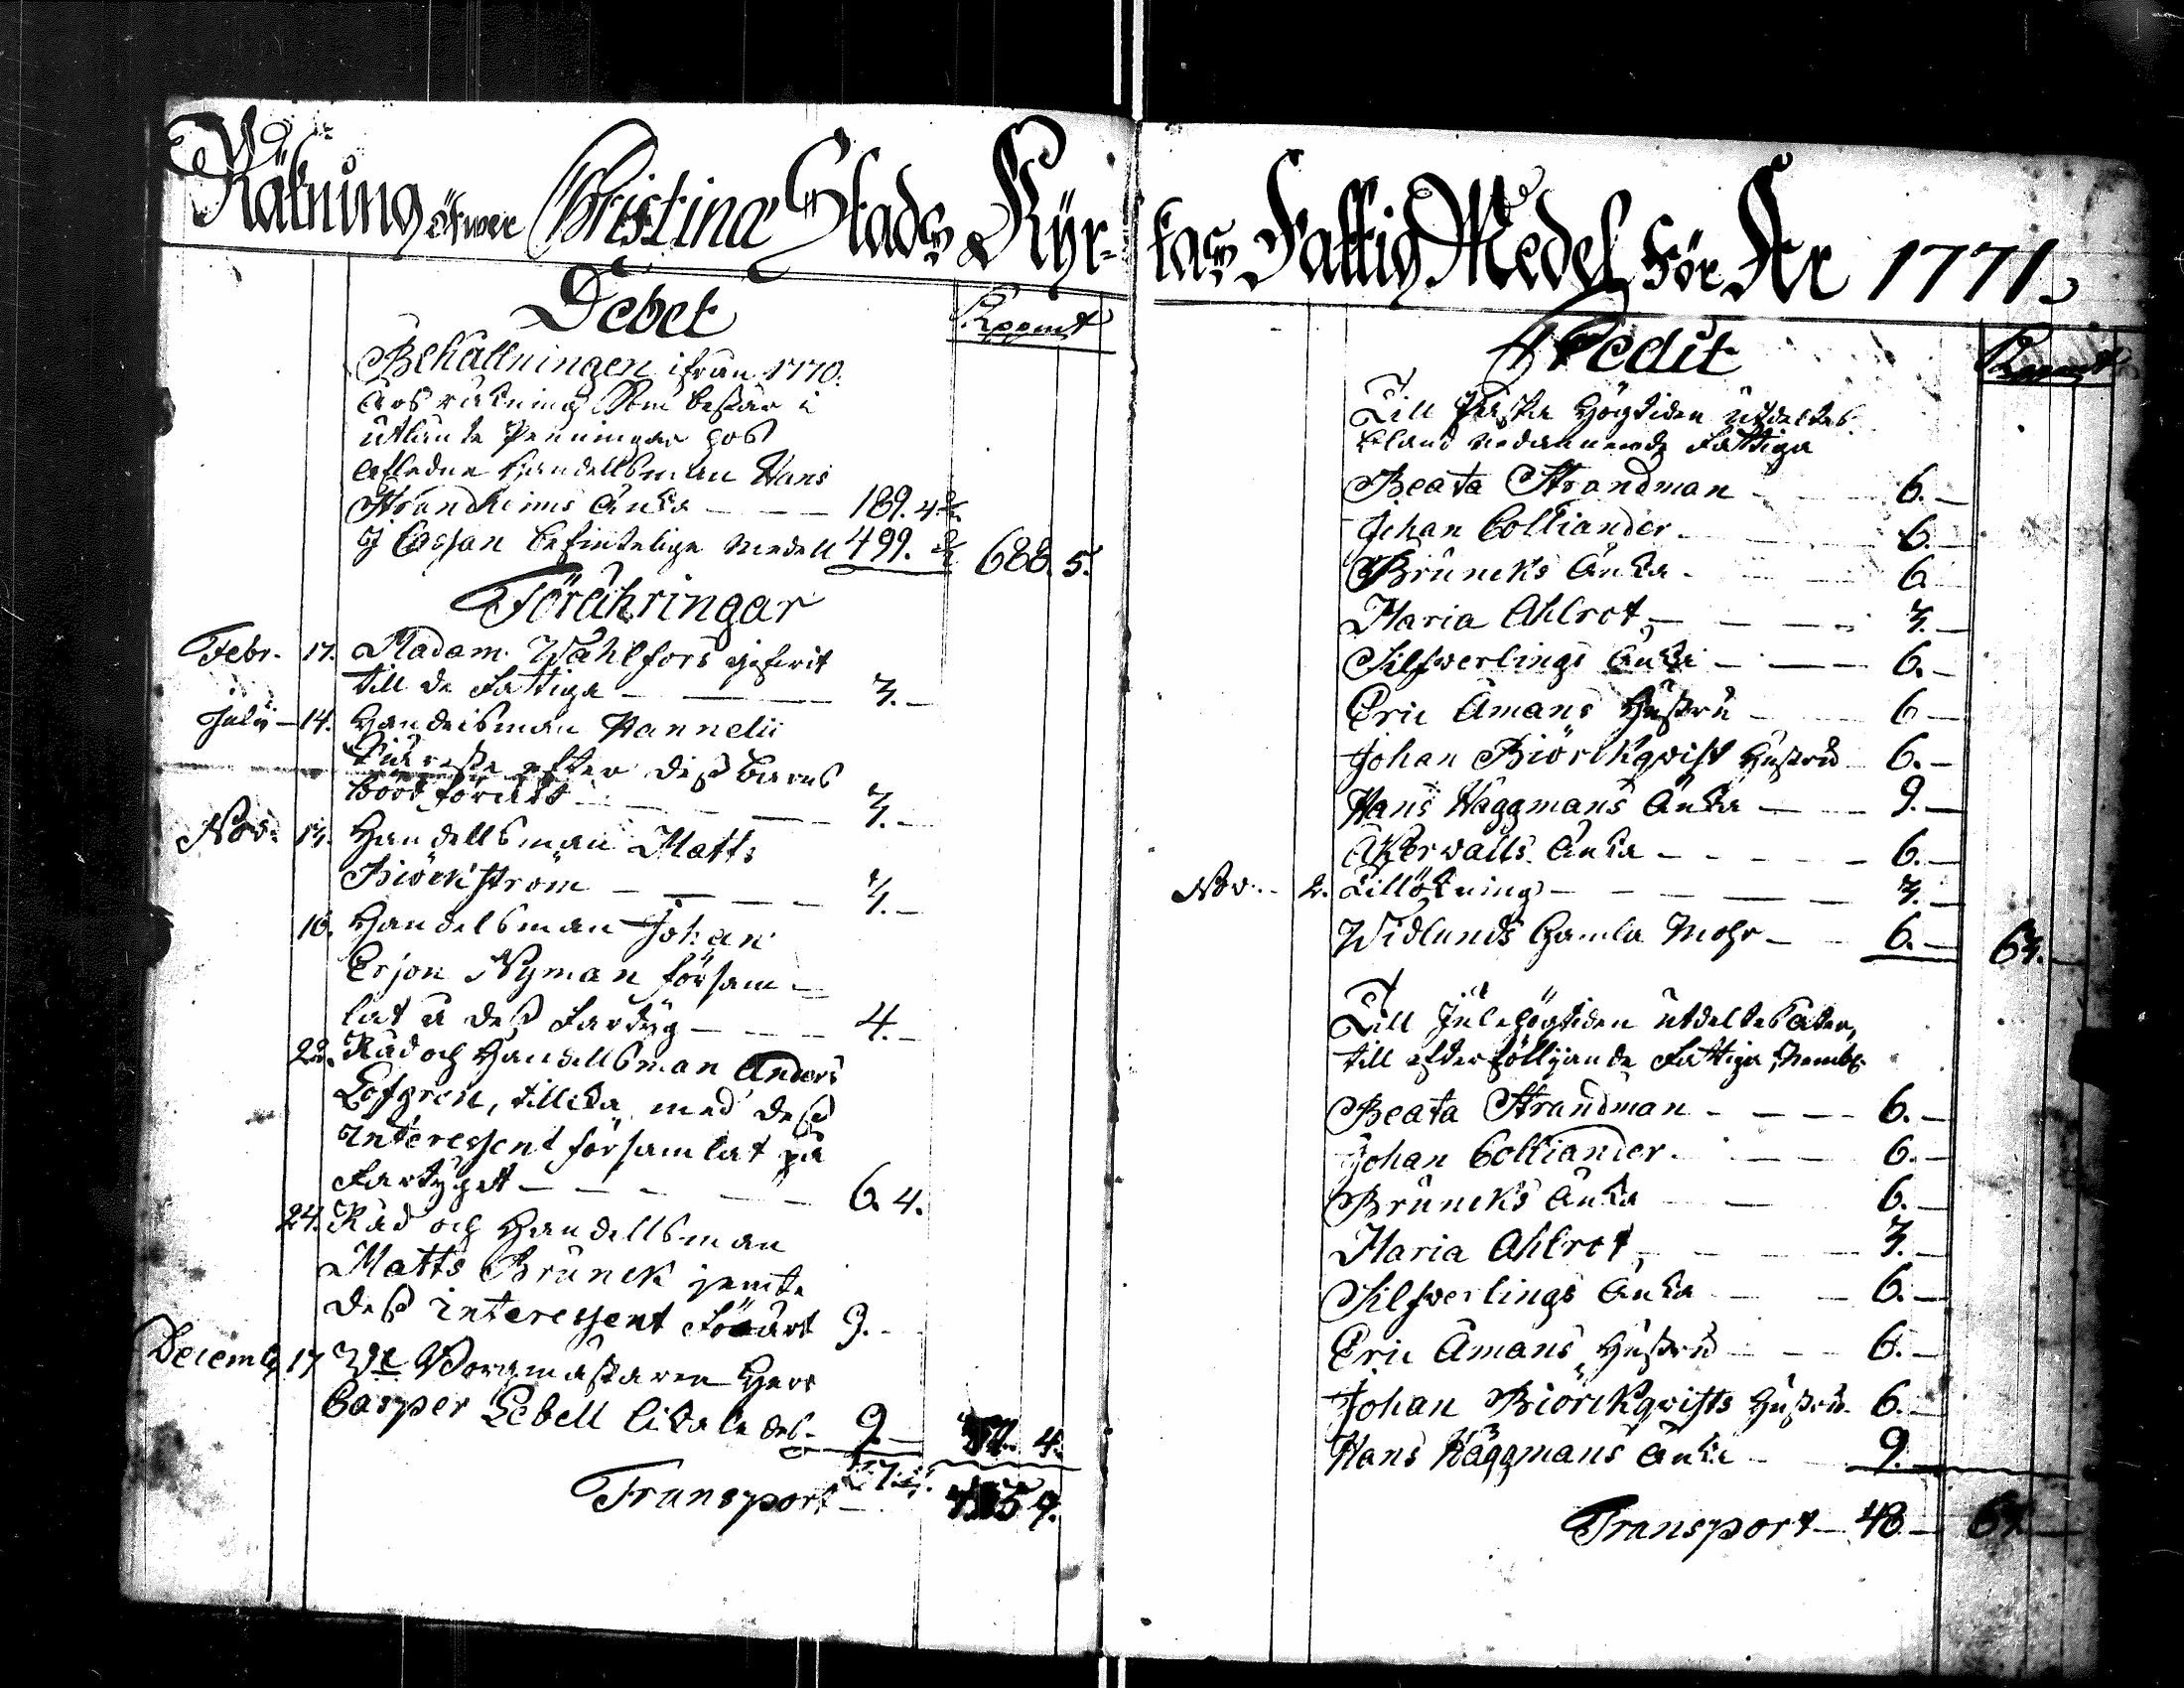 Räkning öfwer Christinæ Stads Kyr-
kas Fattig Medel För År 1771.
Debet
Kppmt
Behållningen ifrån 1770.
Års räkning Som består i
utlånte Penningar hos
afledne Handellsman Hans
Strandheims Änka — — — 189. 4
J Cassan befintelige medell 499. 688. 5.
Förähringar
Febr. 17. Madam Wahlfors gifwit
till de Fattiga — — — 3. —
Julij — 14. Handelsman Hannelii
efter dess barns
börd förärdt — — — 3. —
Nov. 13. Handellsman Matts
Biörckström — — — —
16. Handelsman Johan
Ersson Nyman försam-
lat å dess Fartyg — — — 4. —
22. Råd och Handellsman Anders
Löfgren, tillika med dess
Interessent församlat på
Fartyget — — — — 6. 4.
24. Råd och Handellsman
Matts Brunck jemte
dess interessent Förärt 9. —
Decemb. 17 Borgmästaren Herr
Casper Lebell likaledes — 9. — 4.
Transport —
Credit
Kppmt
Till Påska Högtiden utdeltes
bland nedannemde Fattiga
Beata Strandman — — 6. —
Johan Colliander — — 6. —
Bruncks Änka — — 6 —
Maria Ahlrot — — — 3. —
Silfwerlings Änka — — — 6. —
Eric Åmans Hustru — — 6 —
Johan Biörckqvist Hustru — 6. —
Hans Häggmans Änka — — 9. —
Åkerwalls Änka — — — — 6. —
Nov. — 2. Tillökning — — — — 3. —
Widlunds Gamla Mohr — — 6. — 63. —
Till Julehögtiden utdeltes åter,
till efterföllijande Fattiga, Nembl.
Beata Strandman — — — 6. —
Johan Colliander — — 6. —
Bruncks Änka — — 6. —
Maria Ahlrot — — — 3. —
Silfwerlings Änka — — 6. —
Eric Åmans Hustru — — 6. —
Johan Biörckqvists Hustru. 6. —
Hans Häggmans Änka — 9.
Transport — 48 — 63 —